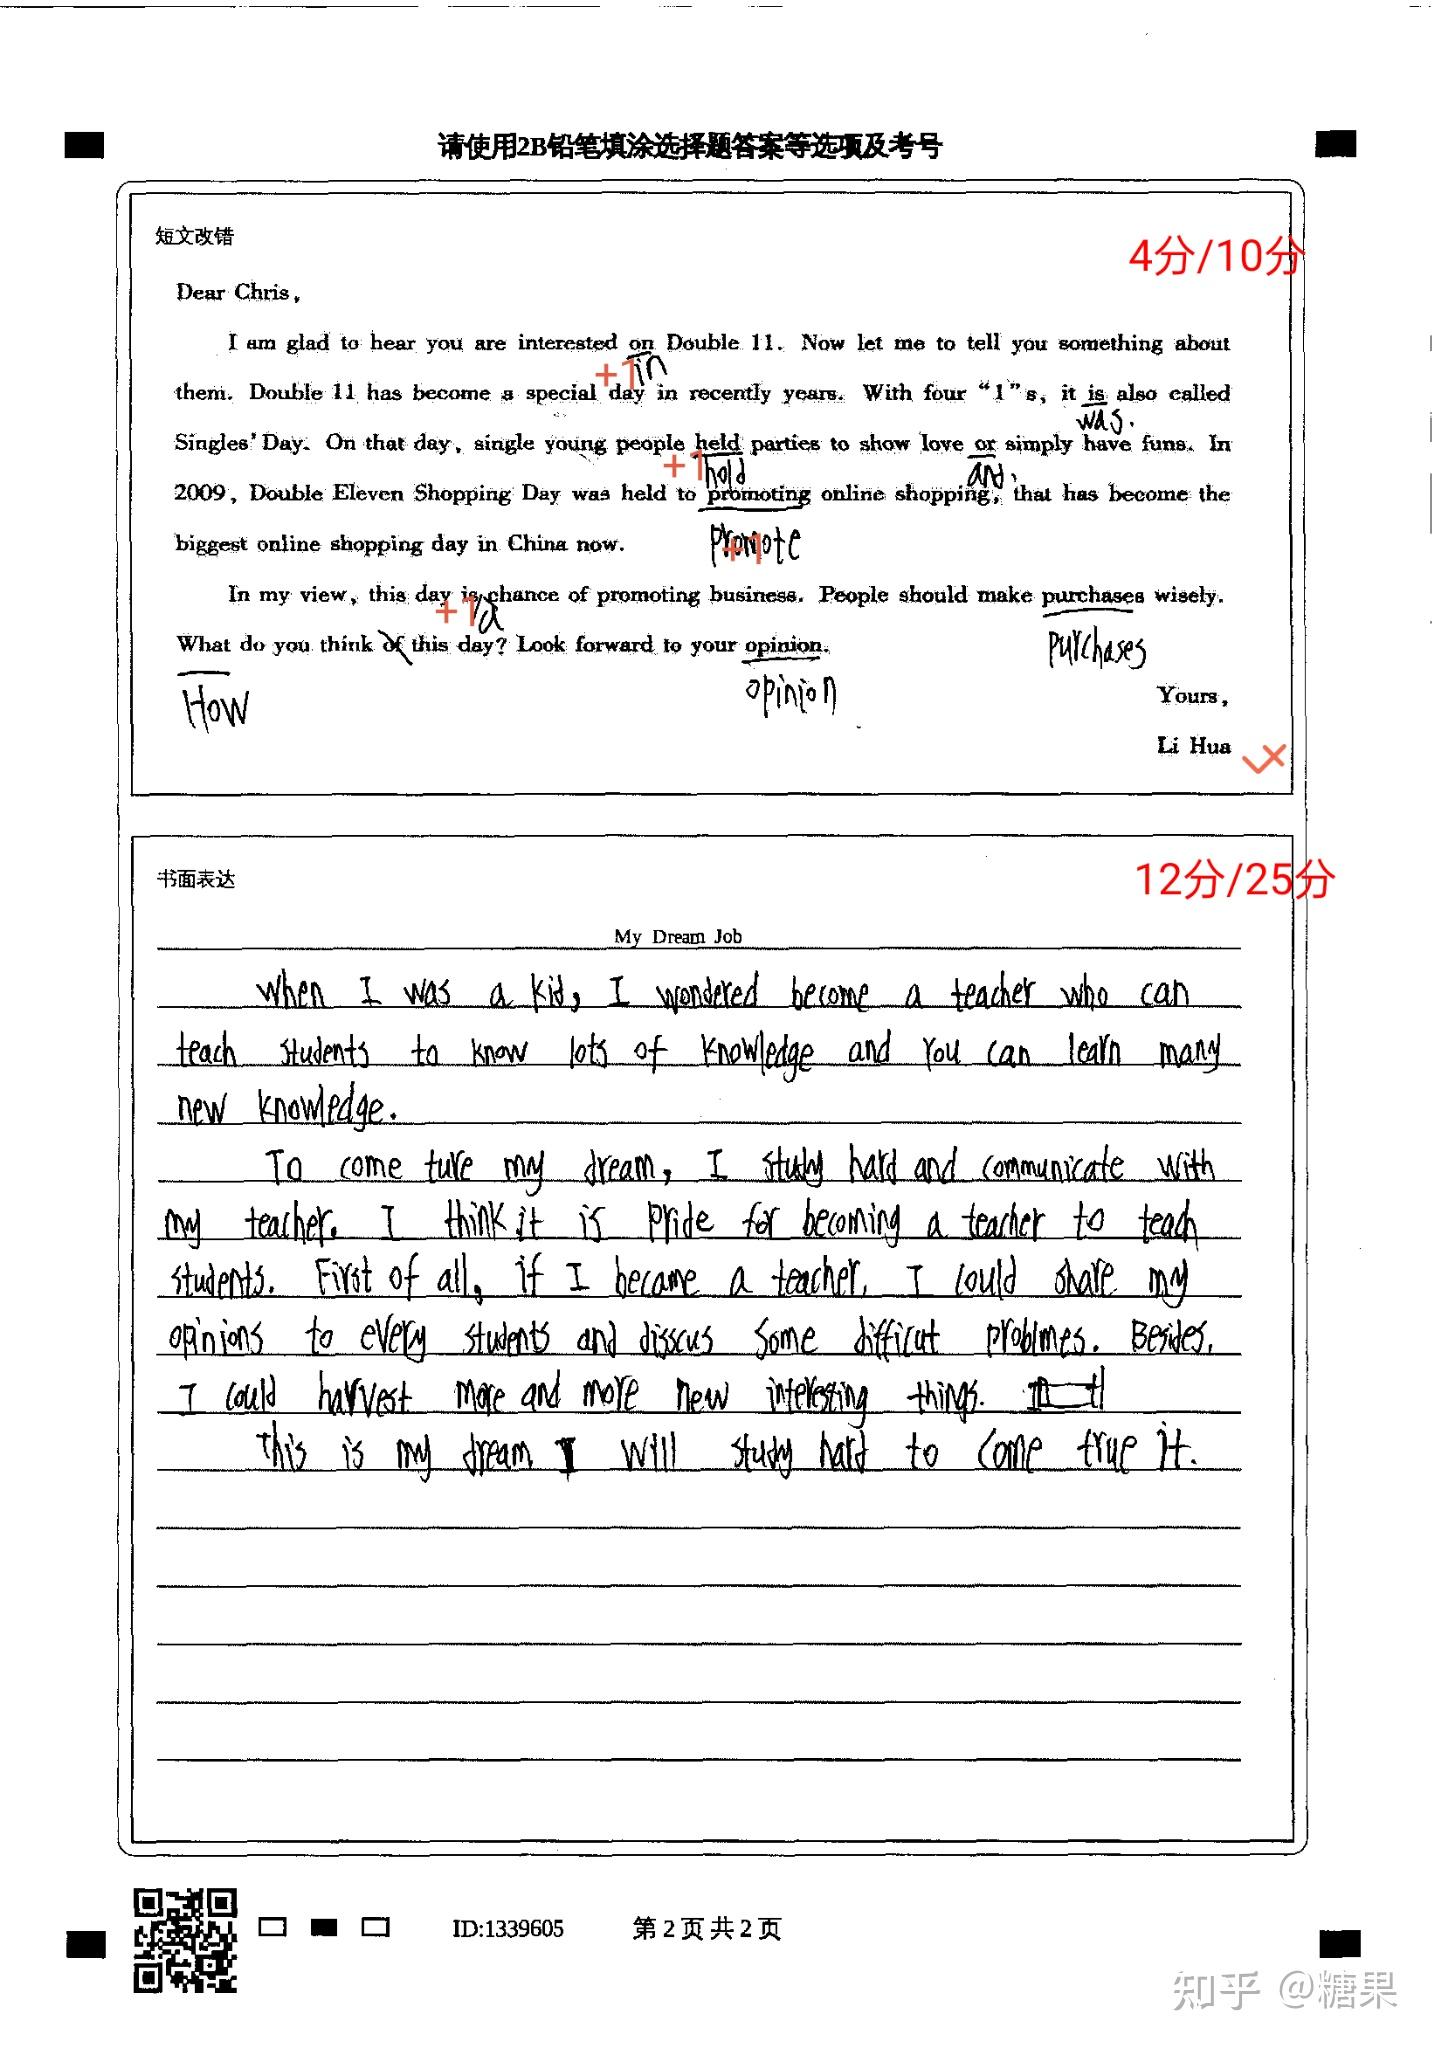 请使用2B铅笔填涂选择题答案等选项及考号
短文改错
4分/10分
Dear Chris,
I am glad to hear you are interested on Double 11. Now let me to tell you something about
+1 in
them. Double 11 has become a special day in recently years. With four “1”s, it is also called
was.
Singles' Day. On that day, single young people held parties to show love or simply have funs. In
+1 hold and
2009, Double Eleven Shopping Day was held to promoting online shopping, that has become the
promote +1
biggest online shopping day in China now.
In my view, this day is chance of promoting business. People should make purchases wisely.
+1 a
purchases
What do you think of this day? Look forward to your opinion.
How opinion
Yours,
Li Hua
书面表达
12分/25分
My Dream Job
When I was a kid, I wondered become a teacher who can
teach students to know lots of knowledge and you can learn many
new knowledge.
To come ture my dream, I study hard and communicate with
my teacher. I think it is pride for becoming a teacher to teach
students. First of all, if I became a teacher, I could share my
opinions to every students and disscus some difficut problmes. Besides,
I could harvest more and more new interesting things.
This is my dream I will study hard to come true it.
ID:1339605 第 2 页 共 2 页
知乎 @糖果